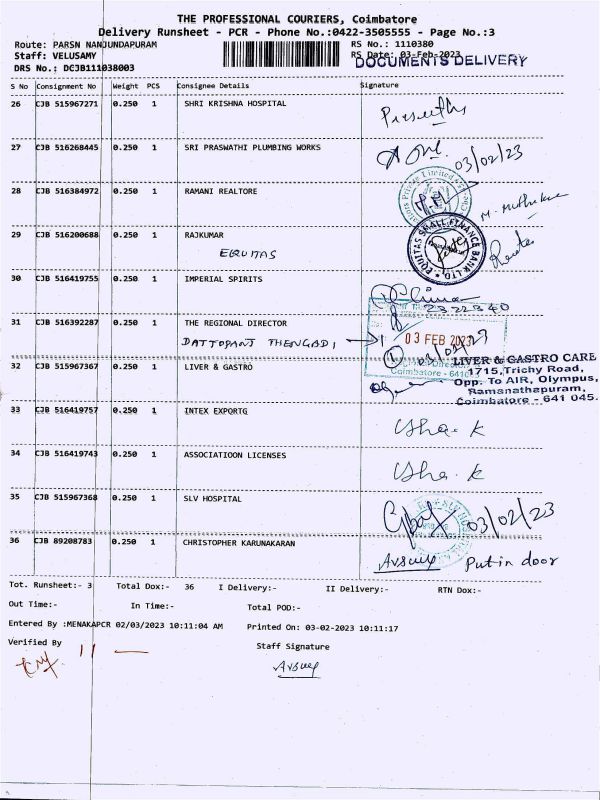 THE PROFESSIONAL COURIERS, Coimbatore
Delivery Runsheet - PCR - Phone No.:0422-3505555 - Page No.:3
Route: PARSN NANJUNDAPURAM RS No.: 1110380
Staff: VELUSAMY RS Date: 03-Feb-2023
DOCUMENTS DELIVERY
DRS No.: DCJB111038003
S No Consignment No Weight PCS Consignee Details Signature
26 CJB 515967271 0.250 1 SHRI KRISHNA HOSPITAL
27 CJB 516268445 0.250 1 SRI PRASWATHI PLUMBING WORKS 03/02/23
28 CJB 516384972 0.250 1 RAMANI REALTORE
29 CJB 516200688 0.250 1 RAJKUMAR
EQUITAS SMALL FINANCE BANK LTD.
30 CJB 516419755 0.250 1 IMPERIAL SPIRITS
2322340
31 CJB 516392287 0.250 1 THE REGIONAL DIRECTOR
DATTOPANT THENGADI
03 FEB 2023
Coimbatore - 641
32 CJB 515967367 0.250 1 LIVER & GASTRO
LIVER & GASTRO CARE
1715,Trichy Road,
Opp. To AIR, Olympus,
Ramanathapuram,
Coimbatore - 641 045.
33 CJB 516419757 0.250 1 INTEX EXPORTG
Usha. K
34 CJB 516419743 0.250 1 ASSOCIATIOON LICENSES
Usha. K
35 CJB 515967368 0.250 1 SLV HOSPITAL
03/02/23
36 CJB 89208783 0.250 1 CHRISTOPHER KARUNAKARAN
Put in door
Tot. Runsheet:- 3 Total Dox:- 36 I Delivery:- II Delivery:- RTN Dox:-
Out Time:- In Time:- Total POD:-
Entered By :MENAKAPCR 02/03/2023 10:11:04 AM Printed On: 03-02-2023 10:11:17
Verified By Staff Signature